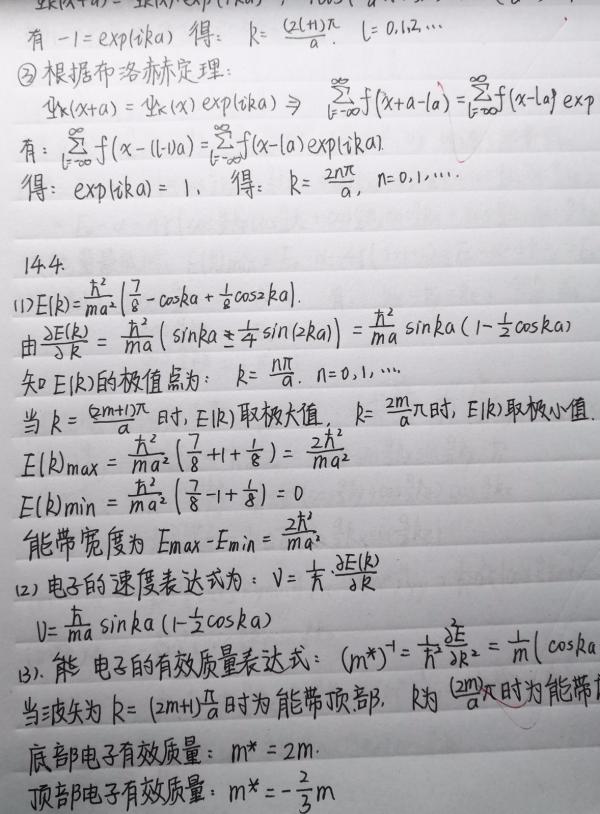 有 -1=exp(ika) 得: k=(2l+1)π/a. l=0,1,2,…
③根据布洛赫定理:
Ψk(x+a)=Ψk(x)exp(ika) ⇒ ∑_{l=-∞}^{∞} f(x+a-la)=∑_{l=-∞}^{∞} f(x-la) exp
有: ∑_{l=-∞}^{∞} f(x-(l-1)a)=∑_{l=-∞}^{∞} f(x-la)exp(ika).
得: exp(ika)=1, 得: k=2nπ/a, n=0,1,….
14.4.
(1)E(k)=ħ²/ma²(7/8-coska+1/8cos2ka).
由∂E(k)/∂k=ħ²/ma(sinka-1/4sin(2ka))=ħ²/ma sinka(1-1/2coska)
知E(k)的极值点为: k=nπ/a. n=0,1,…
当k=(2m+1)π/a时,E(k)取极大值, k=2m/aπ时,E(k)取极小值.
E(k)max=ħ²/ma²(7/8+1+1/8)=2ħ²/ma²
E(k)min=ħ²/ma²(7/8-1+1/8)=0
能带宽度为 Emax-Emin=2ħ²/ma²
(2)电子的速度表达式为: V=1/ħ·∂E(k)/∂k
V=ħ/ma sinka(1-1/2coska)
(3).能 电子的有效质量表达式: (m*)⁻¹=1/ħ² ∂²E/∂k²=1/m(coska
当波矢为k=(2m+1)π/a时为能带顶部. k为(2m)/aπ时为能带
底部电子有效质量: m*=2m.
顶部电子有效质量: m*=-2/3m